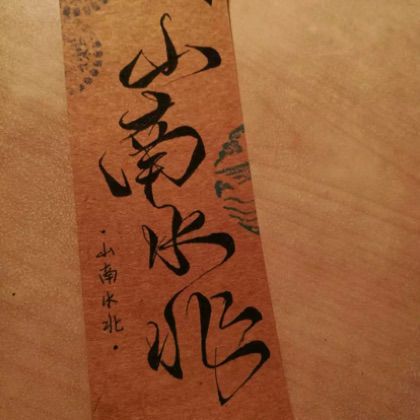 山南水北
·山南水北·